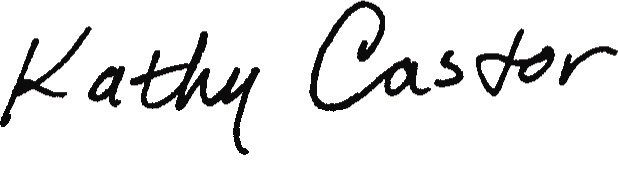 Kathy Castor